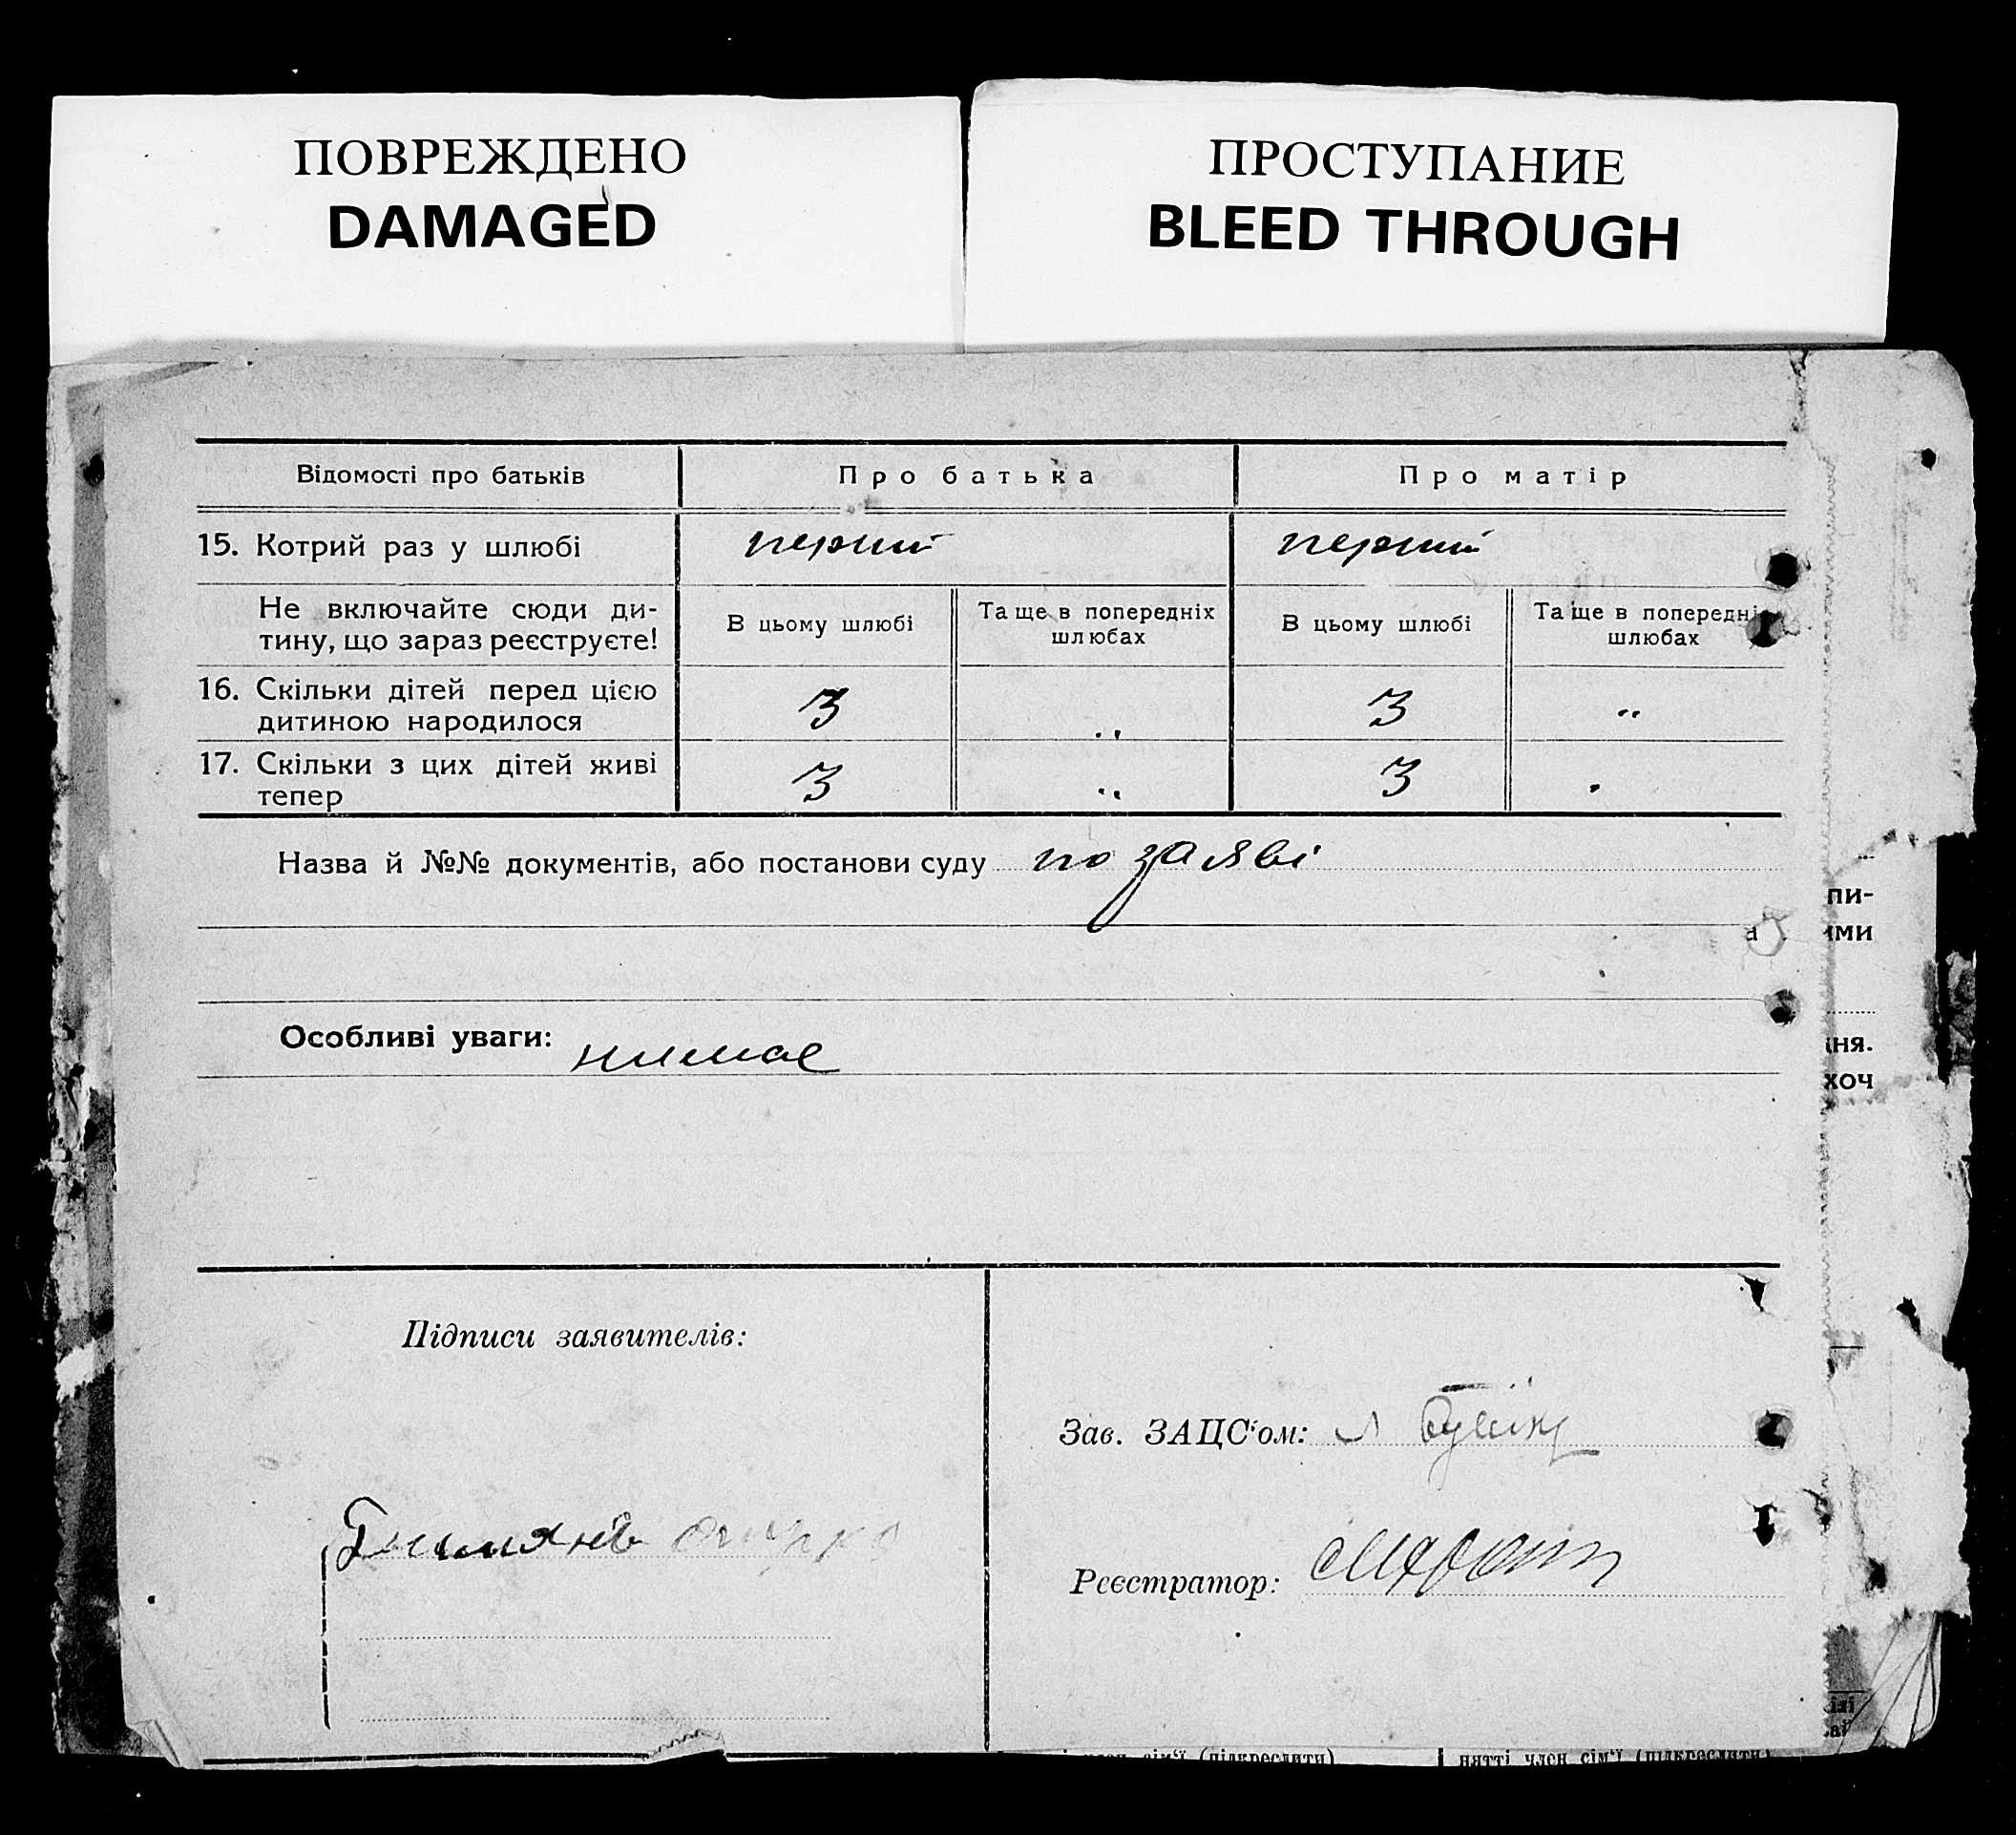 ПОВРЕЖДЕНО
DAMAGED
ПРОСТУПАНИЕ
BLEED THROUGH
Відомості про батьків
Про батька
Про матір
15. Котрий раз у шлюбі
перший
перший
Не включайте сюди ди-
тину, що зараз реєструєте!
В цьому шлюбі
Та ще в попередніх
шлюбах
В цьому шлюбі
Та ще в попередні
шлюбах
16. Скільки дітей перед цією
дитиною народилося
3
„
3
„
17. Скільки з цих дітей живі
тепер
3
„
3
Назва й №№ документів, або постанови суду по заяві
Особливі уваги: нимає
пи-
ими
ня.
хоч
Підписи заявителів:
Зав. ЗАЦС'ом:
Реєстратор:
член сім'ї (підкреслити)
нятті член сім'ї (підкреслити)